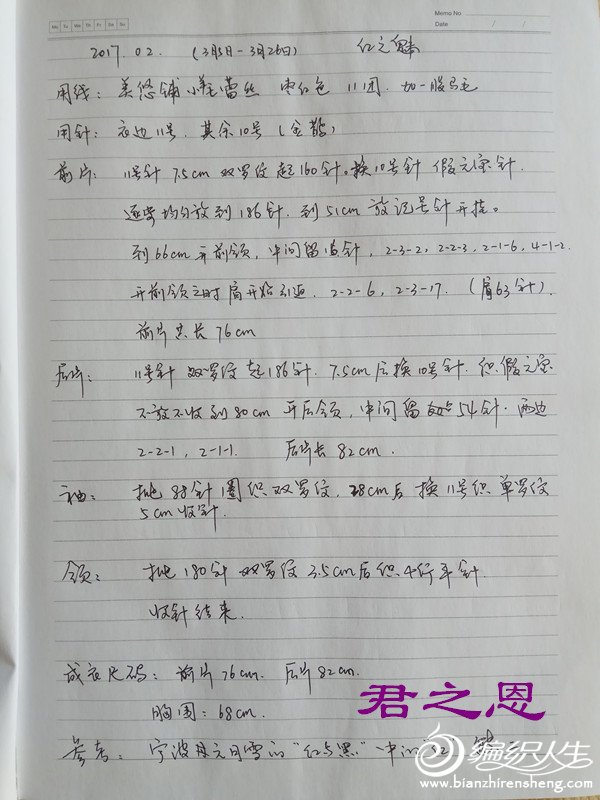 Memo No.
Mo Tu We Th Fr Sa Su
Date / /
2017.02. (3月5日-3月26日) 红之魅
用线: 美悠铺小羊毛蕾丝 枣红色 11团. 加一股马毛
用针: 衣边11号. 其余10号 (全散)
前片: 11号针 7.5cm 双罗纹 起160针。换10号针 假元宝针.
逐步均匀放到186针. 到51cm 放记号针开挂。
到66cm开前领, 中间留 针, 2-3-2, 2-2-3, 2-1-6, 4-1-2
开前领之时肩开始引返. 2-2-6, 2-3-17. (肩63针).
前片总长76cm
后片: 11号针 双罗纹 起186针. 7.5cm后换10号针. 织假元宝
不放不收到80cm 开后领, 中间留 54针. 两边
2-2-1, 2-1-1. 后片长82cm.
袖: 挑88针圈织双罗纹, 28cm后 换11号织单罗纹
5cm收针.
领: 挑180针 双罗纹 3.5cm后织4行平针
收针结束.
成衣尺码: 前片76cm. 后片82cm.
胸围: 68cm.
参考: 宁波 月雪的"红与黑"中的
君之恩
编织人生
www.bianzhirensheng.com